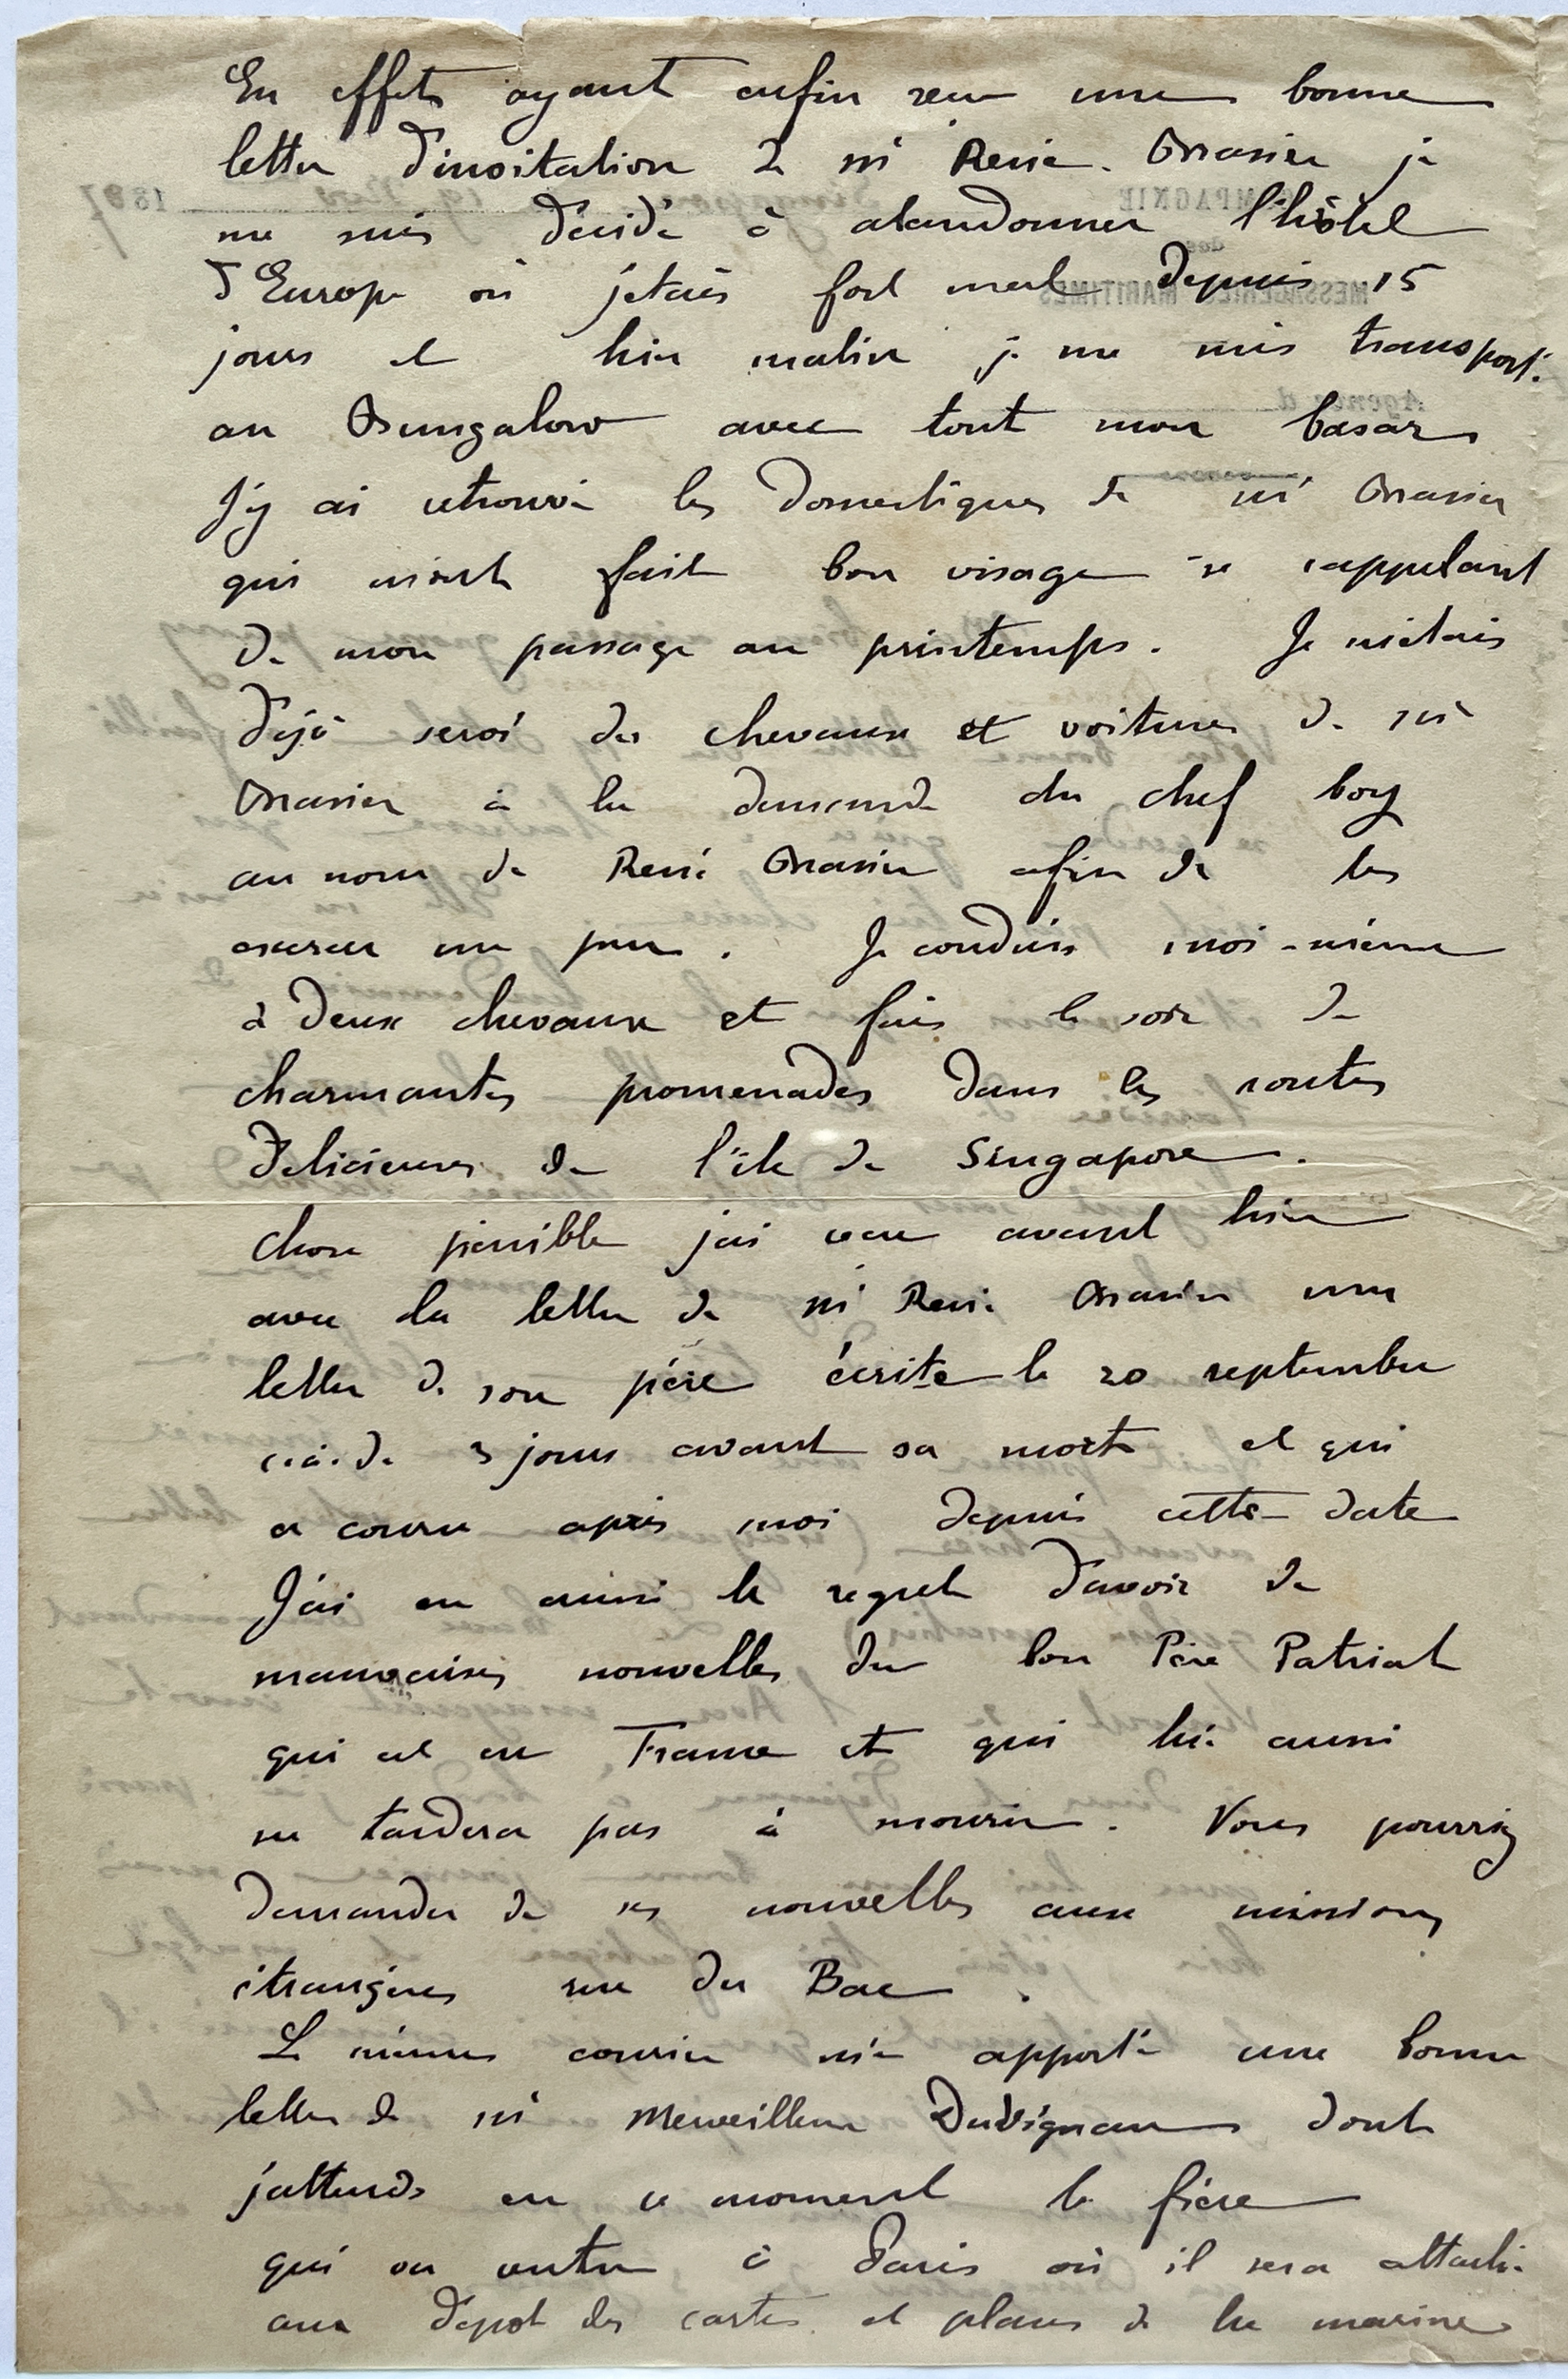 En effet ayant enfin reçu une bonne
lettre d'invitation de Mr René Brasier je
me suis décidé à abandonner l'hôtel
d'Europe où j'etais fort mal depuis 15
jours et hier matin je me suis transporté
au Bungalow avec tout mon basar
J'y ai retrouvé les domestiques de Mr Brasier
qui m'ont fait bon visage se rappelant
de mon passage au printemps. Je m'étais
déjà servi des chevaux et voitures de Mr
Brasier à la demande du chef boy
au nom de René Brasier afin de les
exercer un peu. Je conduis moi-même
à deux chevaux et fais le soir de
charmantes promenades dans les routes
délicieuses de l'île de Singapore.
Chose pénible j'ai reçu avant hier
avec la lettre de Mr René Brasier une
lettre de son père écrite le 20 septembre
c.à.d. 3 jours avant sa mort et qui
a couru après moi depuis cette date
J'ai eu aussi le regret d'avoir de
mauvaises nouvelles du bon Père Patriat
qui est en France et qui lui aussi
ne tardera pas à mourir. Vous pourriez
demander de ses nouvelles aux missions
étrangères rue du Bac.
Le même courrier m'a apporté une bonne
lettre de Mr Merveilleux Duvignau dont
j'attends en ce moment le frère
qui va rentrer à Paris où il sera attaché
aux dépot des cartes et plans de la marine